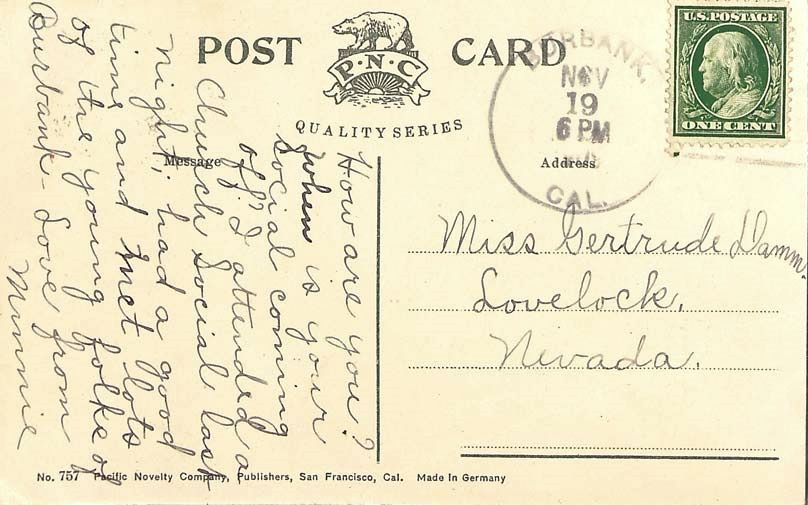 POST CARD
P·N·C
QUALITY SERIES
Message
Address
U.S. POSTAGE
ONE CENT
BURBANK,
NOV
19
6 PM
CAL.
How are you?
When is your
Social coming
off? I attended a
Church Social last
night, had a good
time and met lots
of the young folks of
Burbank - Love from
Minnie
Miss Gertrude Damm.
Lovelock,
Nevada.
No. 757 Pacific Novelty Company, Publishers, San Francisco, Cal. Made in Germany